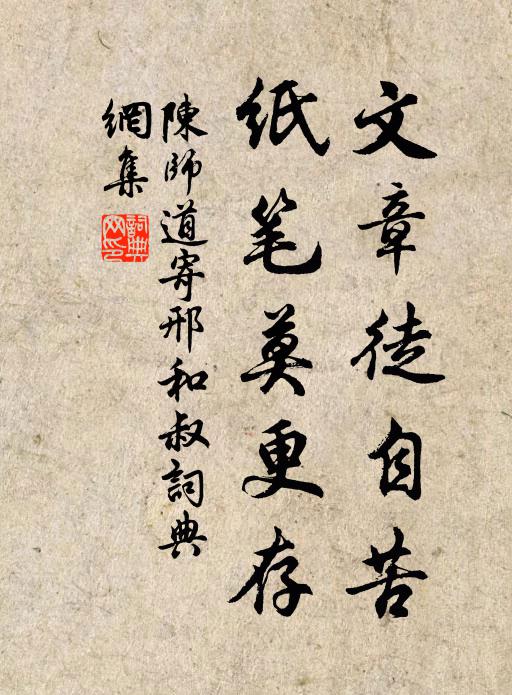 文章徒自苦
紙笔莫更存
陳師道寄邢和叔詞典
網集
詞典
网印